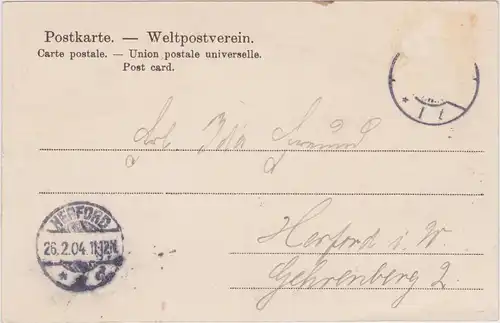 Postkarte. — Weltpostverein.
Carte postale. — Union postale universelle.
Post card.
* f t
Ida
HERFORD
26.2.04.11-12N.
* d
Herford i. W.
Gehrenberg 2.